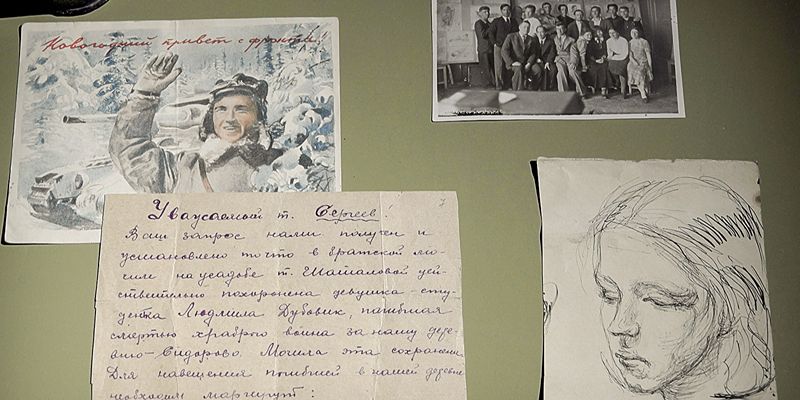 Новогодний привет с фронта!
7
Уважаемый т. Сергеев!
Ваш запрос нами получен и
установлено то что в братской мо-
гиле на усадьбе т. Шаталовой дей-
ствительно похоронена девушка-сту-
дентка Людмила Дубовик, погибшая
смертью храброго воина за нашу дере-
вню-Сидорово. Могила эта сохранена.
Для навещения погибшей в нашей деревне
необходим маршрут: